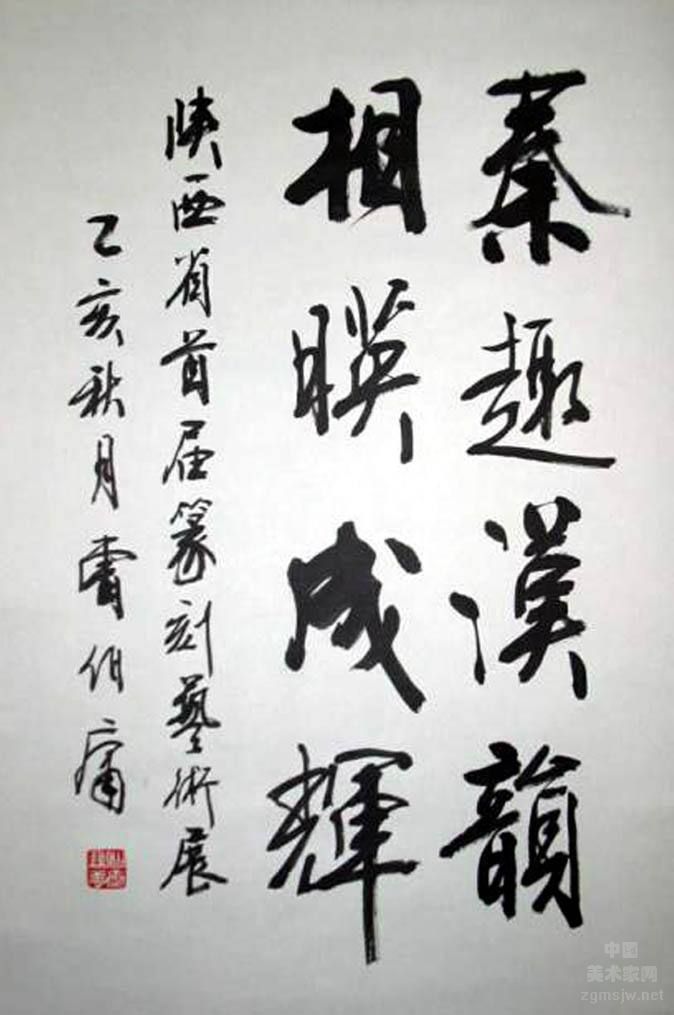 秦趣漢韻
相暎成輝
陝西省首届篆刻藝術展
乙亥秋月曹伯庸
中国
美术家网
zgmsjw.net